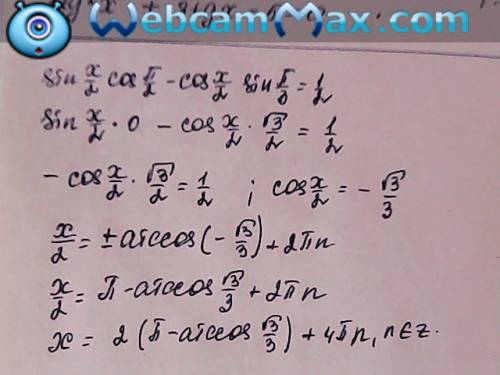 WebcamMax.com
sin x/2 cos π/2 - cos x/2 sin π/3 = 1/2
sin x/2 · 0 - cos x/2 · √3/2 = 1/2
- cos x/2 · √3/2 = 1/2 ; cos x/2 = - √3/3
x/2 = ± arccos(- √3/3) + 2πn
x/2 = π - arccos √3/3 + 2πn
x = 2 (π - arccos √3/3) + 4πn, n ∈ z.